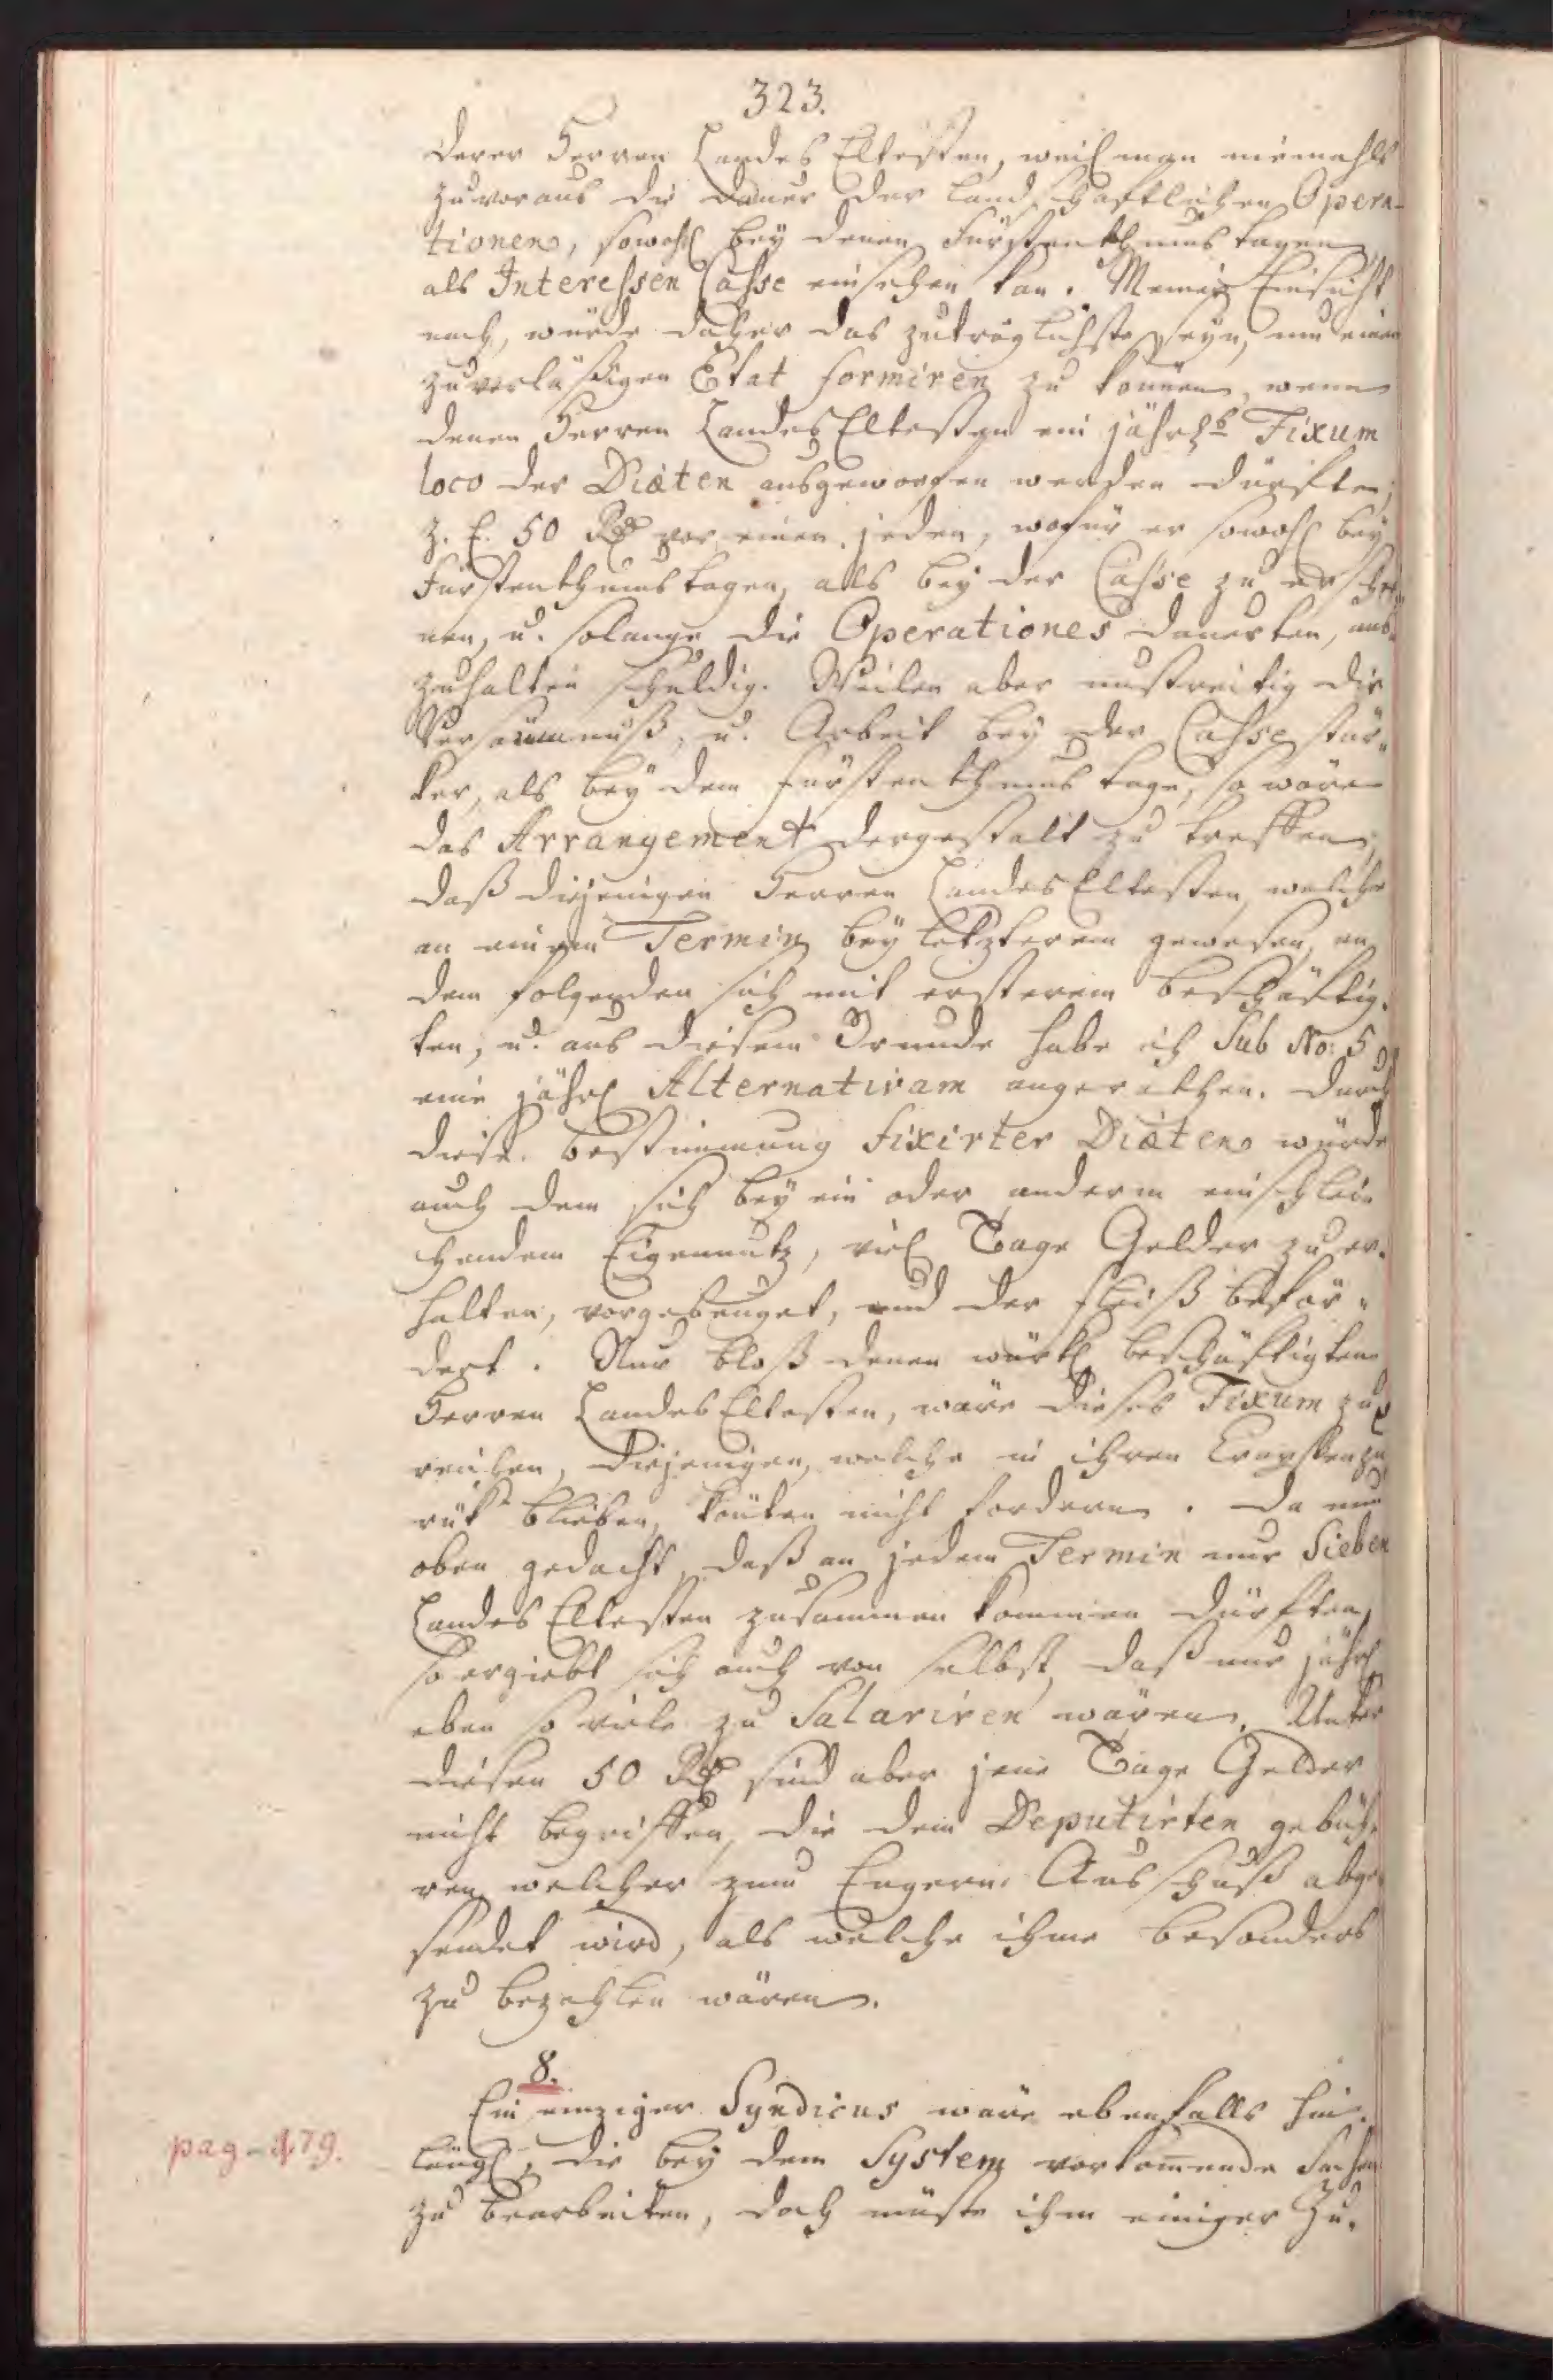 323.
derer Herren Landes Eltesten, weil man niemahls
zuvoraus die Dauer der landschaftlichen Opera-
tionen, sowohl bey denen Fürstenthums tagen,
als Interessen Casse einsehen kan. Meiner Einsicht
nach, würde daher das zuträglichste seyn, um einen
zuverläßigen Etat formiren zu können, wenn
denen Herren Landes Eltesten ein jährl.s Fixum
loco der Diæten ausgeworfen werden dürfte,
z. E. 50 Rtl vor einen jeden, wofür er sowohl bey
Fürstenthums tagen, als bey der Casse zu erschei-
nen, u. solange die Operationes dauerten, aus-
zuhalten schuldig. Weilen aber unstreitig die
Versäumnuß, u. Arbeit bey der Casse stär-
ker, als bey dem Fürstenthums tage, so wäre
das Arrangement dergestalt zu treffen,
daß diejenigen Herren Landes Eltesten, welche
an einem Termin bey letzterem gewesen, an
dem folgenden sich mit ersterem beschäftig-
ten, u. aus diesem Grunde habe ich Sub No: 5
eine jährl Alternativam angerathen. Durch
diese Bestimmung fixirter Diæten würde
auch dem sich bey ein oder anderm einschlei-
chendem Eigennutz, viel Tage Gelder zu er-
halten, vorgebeuget, und der Fleiß beför-
dert. Nur bloß denen würkl beschäftigten
Herren Landes Eltesten, wäre dieses Fixum zu
reichen, diejenigen, welche in ihren Crayssen zu
rük blieben, könten nicht fordern. Da nun
oben gedacht, daß an jedem Termin nur Sieben
Landes Eltesten zusammen kommen dürften,
so ergiebt sich auch von selbst, daß nur jährl
eben so viele zu Salariren wären. Unter
diesen 50 Rtl sind aber jene Tage Gelder
nicht begriffen, die dem Deputirten gebüh-
ren welcher zum Engern Ausschuß abge
sendet wird, als welche ihme besonders
zu bezahlen wären.
8.
Ein einziger Syndicus wäre ebenfalls hin-
pag - 479.
längl, die bey dem System vorkom̅ende Sachen
zu bearbeiten, doch müste ihm einiger Zu-